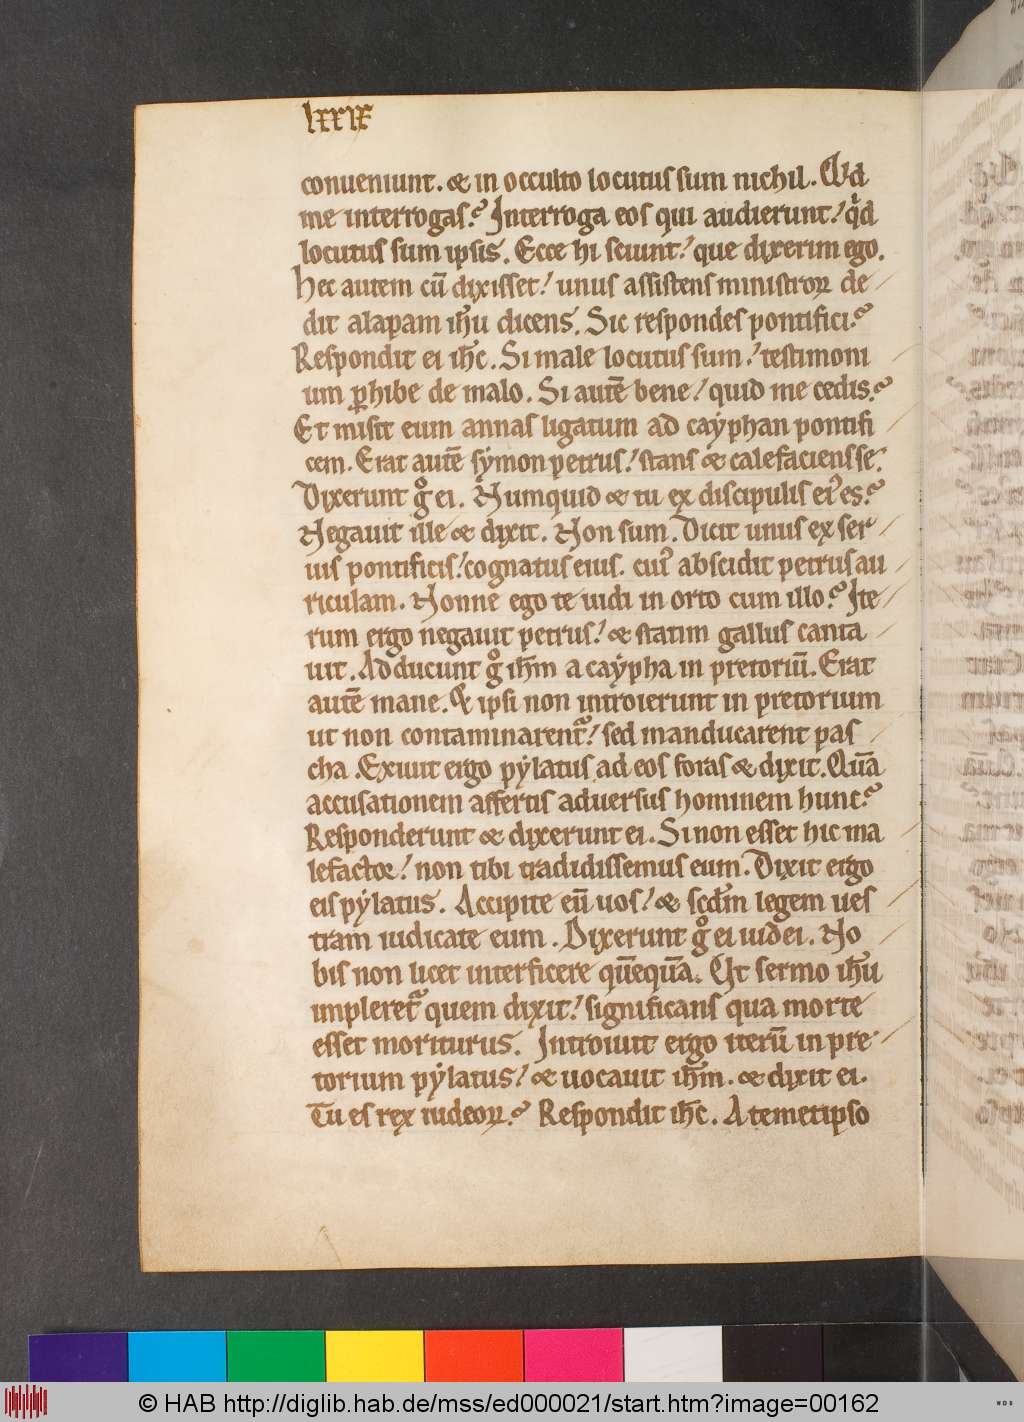 lxxix
conueniunt. & in occulto locutus sum nichil. Qd̓
me interrogas? Interroga eos qui audierunt! qd̓
locutus sum ipsis. Ecce hi sciunt! que dixerim ego.
Hec autem cū dixisset! unus assistens ministroꝝ de
dit alapam ih̄u dicens. Sic respondes pontifici?
Respondit ei ih̄c. Si male locutus sum! testimoni
um ꝑhibe de malo. Si autē bene! quid me cedis?
Et misit eum annas ligatum ad caẏphan pontifi
cem. Erat autē sẏmon petrus! stans & calefaciens se.
Dixerunt gͦ ei. Numquid & tu ex discipulis ei᾽ es?
Negauit ille & dixit. Non sum. Dicit unus ex ser
uis pontificis! cognatus eius. cui᾽ abscidit petrus au
riculam. Nonne ego te uidi in orto cum illo? Ite
rum ergo negauit petrus! & statim gallus canta
uit. Adducunt gͦ ih̄m a caẏpha in pretoriū. Erat
autē mane. Et ipsi non introierunt in pretorium
ut non contaminarent᾽! sed manducarent pas
cha. Exiuit ergo pẏlatus ad eos foras & dixit. Quā
accusationem affertis aduersus hominem hunc?
Responderunt & dixerunt ei. Si non esset hic ma
lefactor! non tibi tradidissemus eum. Dixit ergo
eis pẏlatus. Accipite eū uos! & scd̄m legem ues
tram iudicate eum. Dixerunt gͦ ei iudei. No
bis non licet interficere quēquā. Ut sermo ih̄u
impleret᾽ quem dixit! significans qua morte
esset moriturus. Introiuit ergo iterū in pre
torium pẏlatus! & uocauit ih̄m. & dixit ei.
Tu es rex iudeoꝝ? Respondit ih̄c. A temetipso
© HAB http://diglib.hab.de/mss/ed000021/start.htm?image=00162